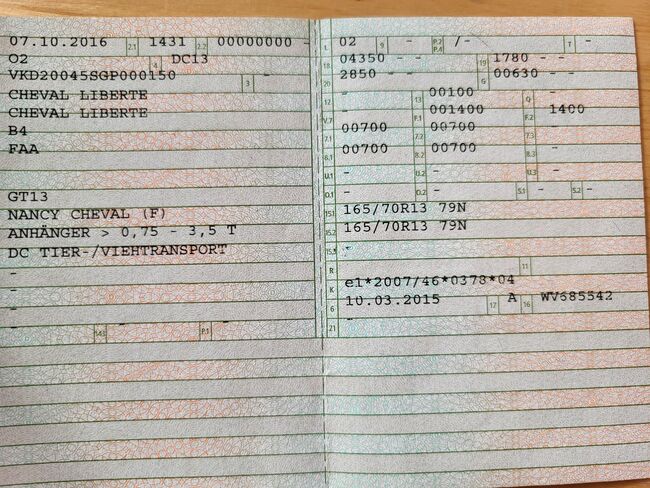 07.10.2016 2.1 1431 2.2 00000000 -
O2 4 DC13
VKD20045SGP000150 3 -
CHEVAL LIBERTE
CHEVAL LIBERTE
B4
FAA
GT13
NANCY CHEVAL (F)
ANHÄNGER > 0,75 - 3,5 T
DC TIER-/VIEHTRANSPORT
-
-
-
14.3 - P.1
L 02 9 - P.2 P.4 /- T -
18 04350 - - 19 1780 - -
20 2850 - - G 00630 - -
12 - 13 00100 Q -
V.7 - F.1 001400 F.2 1400
7.1 00700 7.2 00700 7.3 -
8.1 00700 8.2 00700 8.3 -
U.1 - U.2 - U.3 -
O.1 - O.2 - S.1 - S.2 -
15.1 165/70R13 79N
15.2 165/70R13 79N
15.3 -
R 11
K e1*2007/46*0378*04
6 10.03.2015 17 A 16 WV685542
21 -